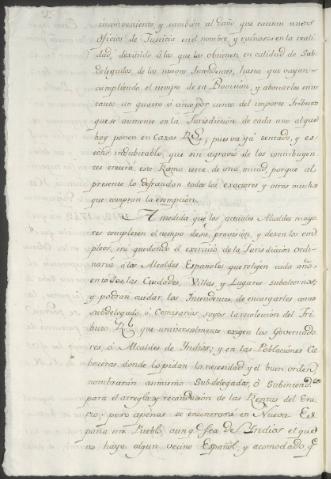 inconveniente, y tambien al daño que causan unos
oficios de Justicia en el nombre, y ruinosos en la reali
dad, dexando á los que los obtienen, en calidad de Sub-
delegados, de los nuevos Intendentes, hasta que vayan
cumpliendo el tiempo de su Provision, y abonarles entre
tanto un quatro ó cinco por ciento del importe Tributo
que se aumente en la Jurisdiccion de cada uno al que
hoy ponen en Caxas Rs., pues va yá tentado, y es
echo indubitable, que sin agravio de los contribuyen
tes crecerá este Ramo cerca de una mitad, porque al
presente lo defraudan todos los exactores, y otros muchos
que compran la exempcion.
A medida que los actuales Alcaldes mayo
res cumpliesen el tiempo de su provision, y dexen los em
pleos, irá quedando el exercicio de la Jurisdiccion ordi
naria á los Alcaldes Españoles que se eligen cada año
en todas las Ciudades, Villas y Lugares subalternos;
y podrán cuidar los Intendentes, de encargarles como
subdelegados ó Comisarios, suyos la recoleccion del Tri
buto Rl. que universalmente exigen los Governado
res, ó Alcaldes de Indios; y en las Poblaciones Ca
beceras, donde lo pidan la necesidad y el buen orden,
nombrarán asimismo Subdelegados,
para el arreglo, y recaudacion de las Rentas del Era
rio; pero apenas se encontrará en Nueva Es
paña un Pueblo, aunq. sea de Indios el que
no haya algun vecino Español, y acomodado, q.e